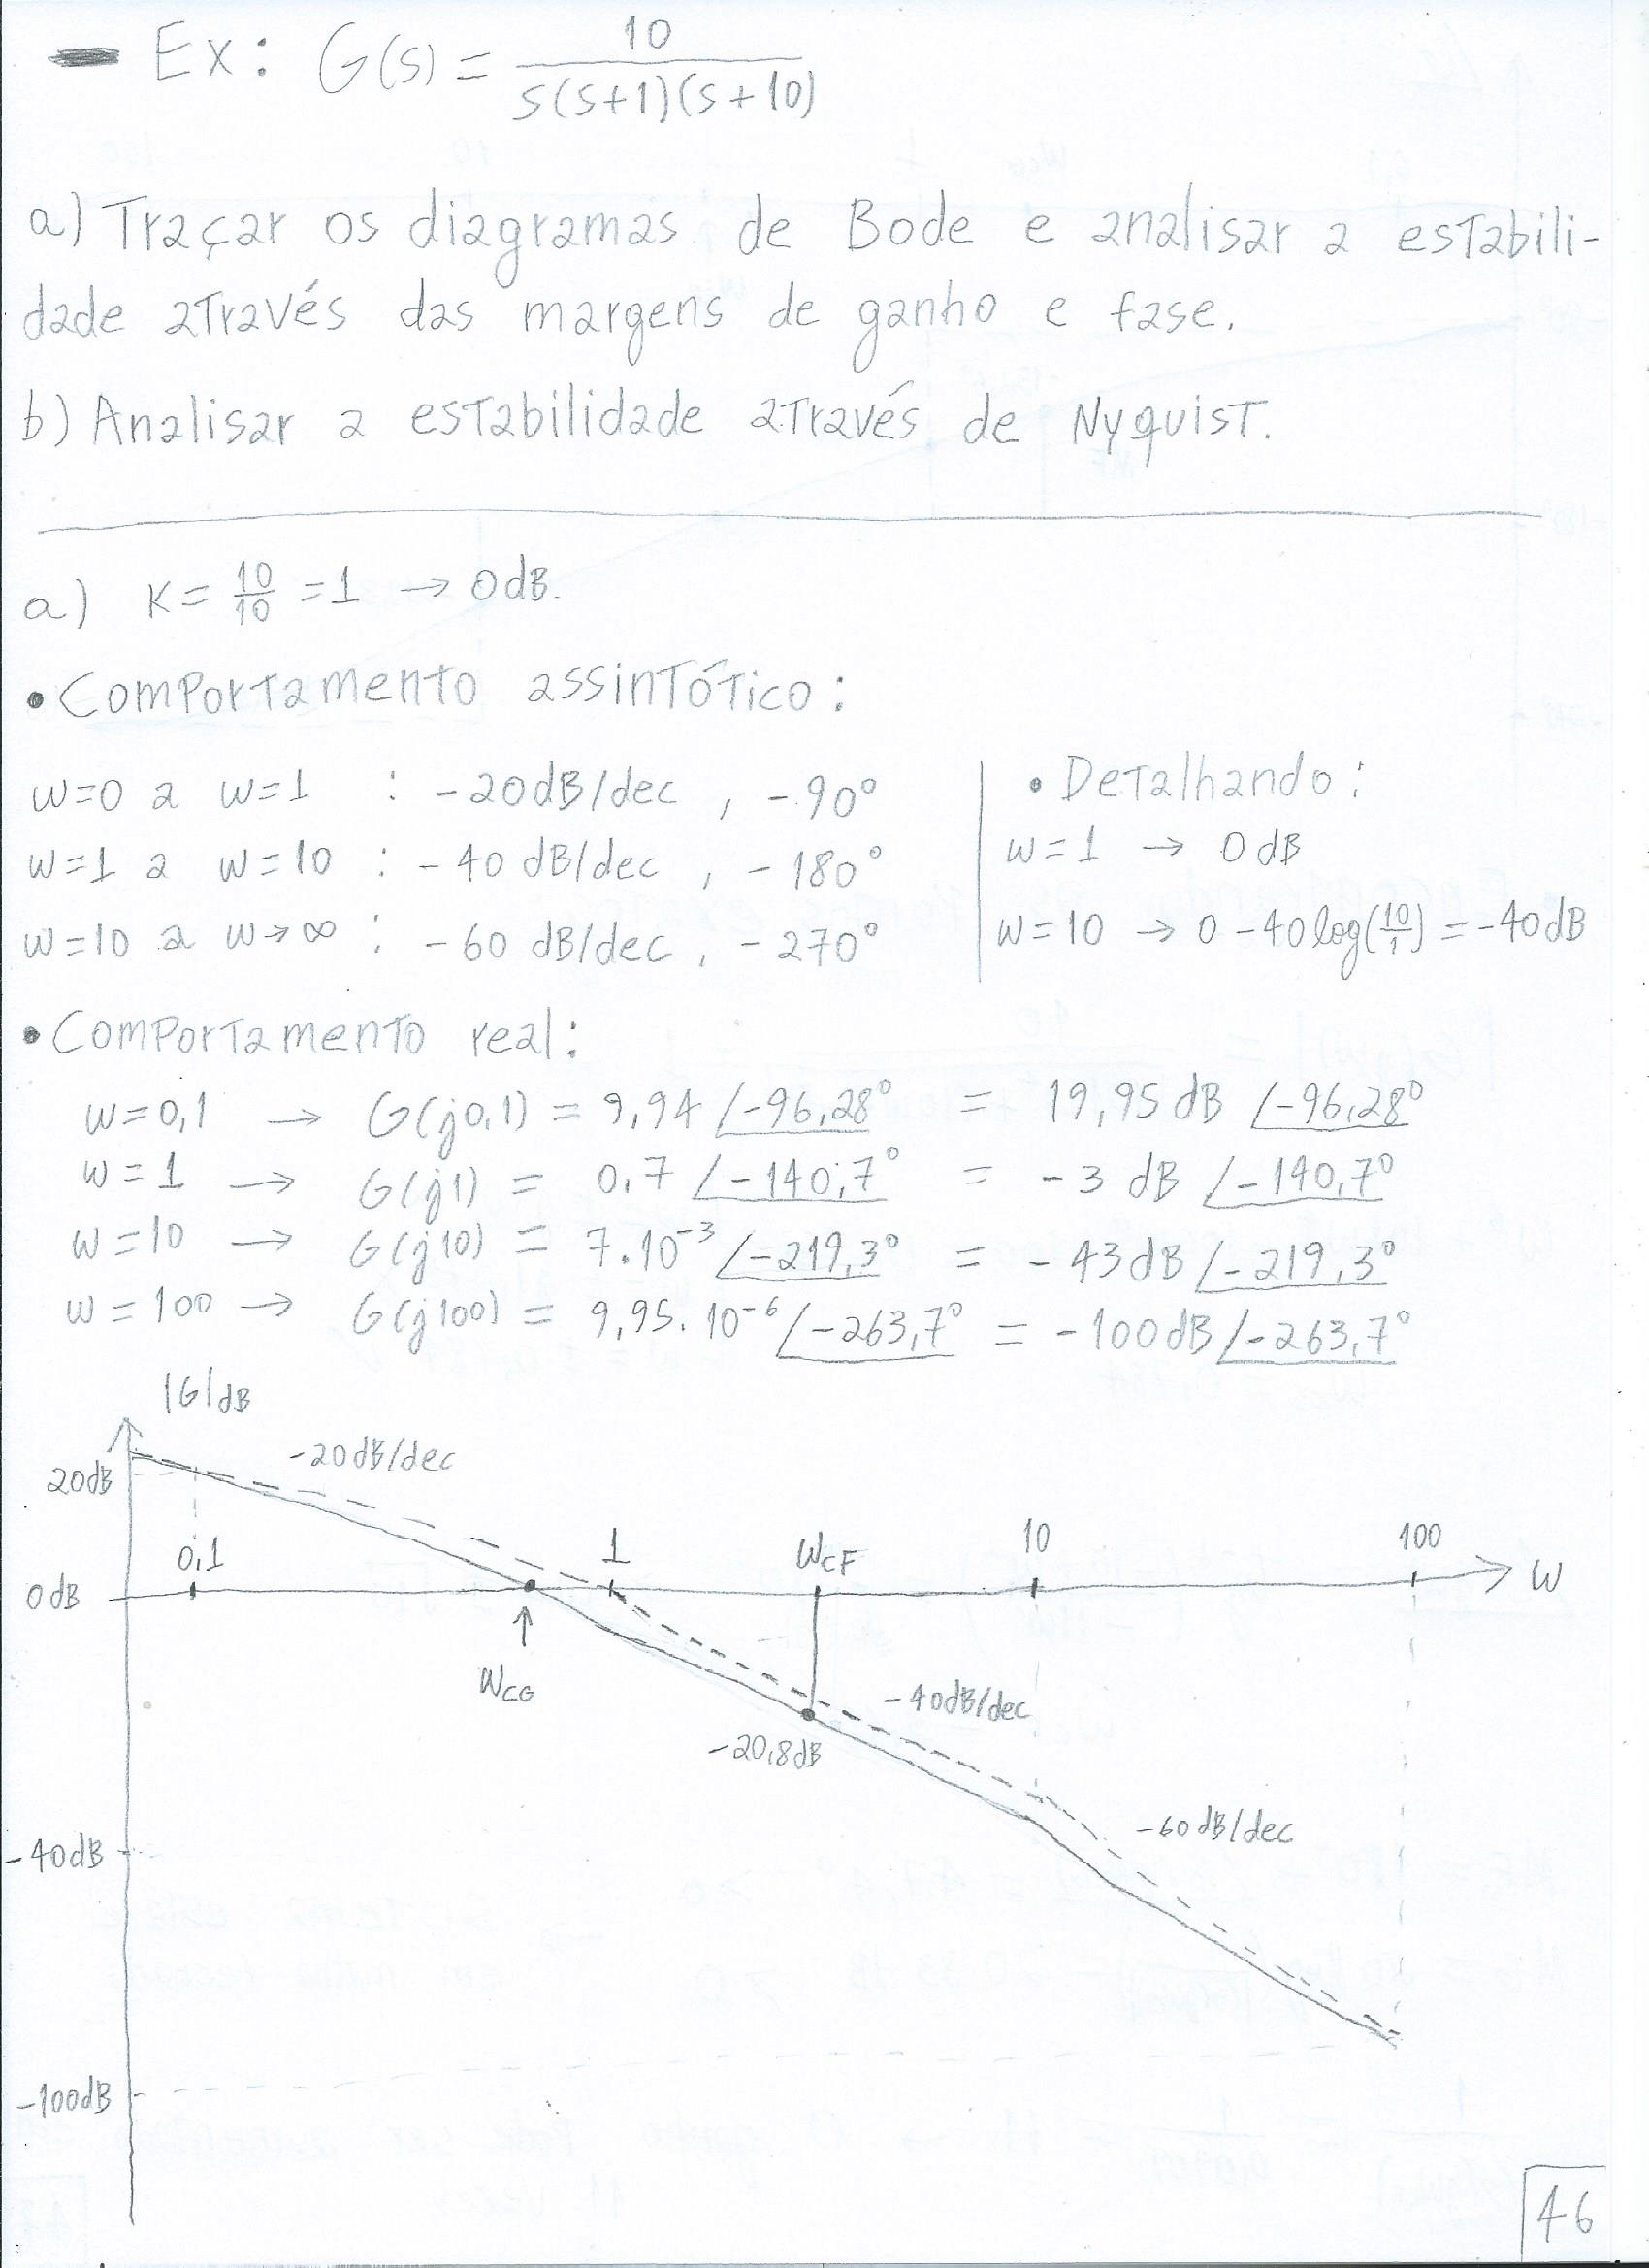 - Ex: G(s) = 10 / s(s+1)(s+10)
a) Traçar os diagramas de Bode e analisar a estabili-
dade através das margens de ganho e fase.
b) Analisar a estabilidade através de Nyquist.
a) K = 10/10 = 1 → 0dB.
• Comportamento assintótico:
w=0 a w=1 : -20dB/dec, -90°
w=1 a w=10 : -40dB/dec, -180°
w=10 a w→∞ : -60 dB/dec, -270°
• Detalhando:
w=1 → 0dB
w=10 → 0 - 40log(10/1) = -40dB
• Comportamento real:
w=0,1 → G(j0,1) = 9,94 ∠-96,28° = 19,95 dB ∠-96,28°
w=1 → G(j1) = 0,7 ∠-140,7° = -3 dB ∠-140,7°
w=10 → G(j10) = 7.10⁻³ ∠-219,3° = -43dB ∠-219,3°
w=100 → G(j100) = 9,95.10⁻⁶ ∠-263,7° = -100dB ∠-263,7°
|G|dB
-20dB/dec
20dB
0,1 1 WCF 10 100
0dB W
WCG
-40dB/dec
-20,8dB
-60dB/dec
-40dB
-100dB
46